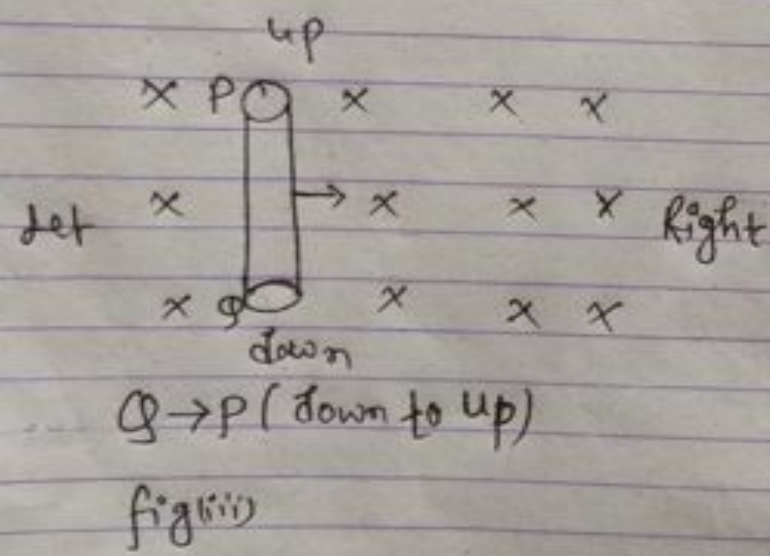 up
× P × × ×
× → × × × Right
× Q × × ×
down
Q → P ( down to up)
fig(iii)